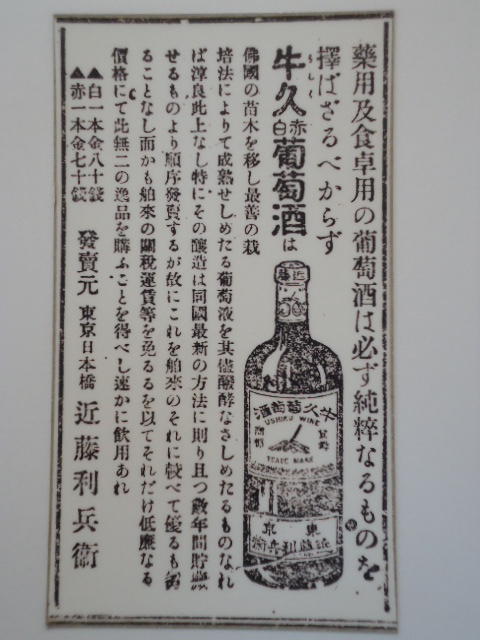 藥用及食卓用の葡萄酒は必ず純粹なるものを
擇ばざるべからず
牛久赤白葡萄酒は
うしく
佛國の苗木を移し最善の栽
培法によりて成熟せしめたる葡萄液を其儘醱酵なさしめたるものなれ
ば淳良此上なし特にその釀造は同國最新の方法に則り且つ數年間貯藏
せるものより順序發賣するが故にこれを舶來のそれに較べて優るも劣
ることなし而かも舶來の關稅運賃等を免るるを以てそれだけ低廉なる
價格にて此無二の逸品を購ふことを得べし速かに飮用あれ
▲白一本金八十錢
▲赤一本金七十錢
發賣元 東京日本橋 近藤利兵衞
近藤
牛久葡萄酒
USHIKU WINE
TRADE MARK
東京
近藤利兵衞